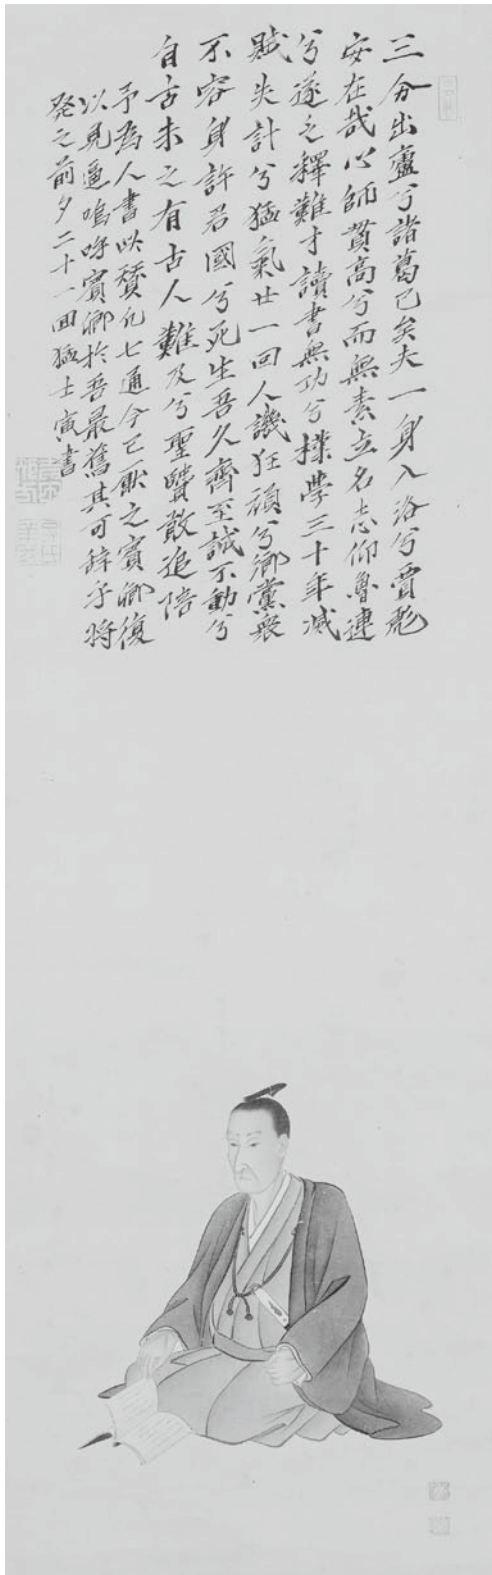 三分出廬兮諸葛已矣夫一身入洛兮賈彪
安在哉心師貫高兮而無素立名志仰魯連
兮遂乏釋難才讀書無功兮樸學三十年滅
賊失計兮猛氣廿一回人譏狂頑兮鄉黨衆
不容身許君國兮死生吾久齊至誠不動兮
自古未之有古人難及兮聖賢敢追陪
予為人書此賛凡七通今已厭之賓卿復
以見逼嗚呼賓卿於吾最舊其可辞乎將
発之前夕二十一回猛士寅書